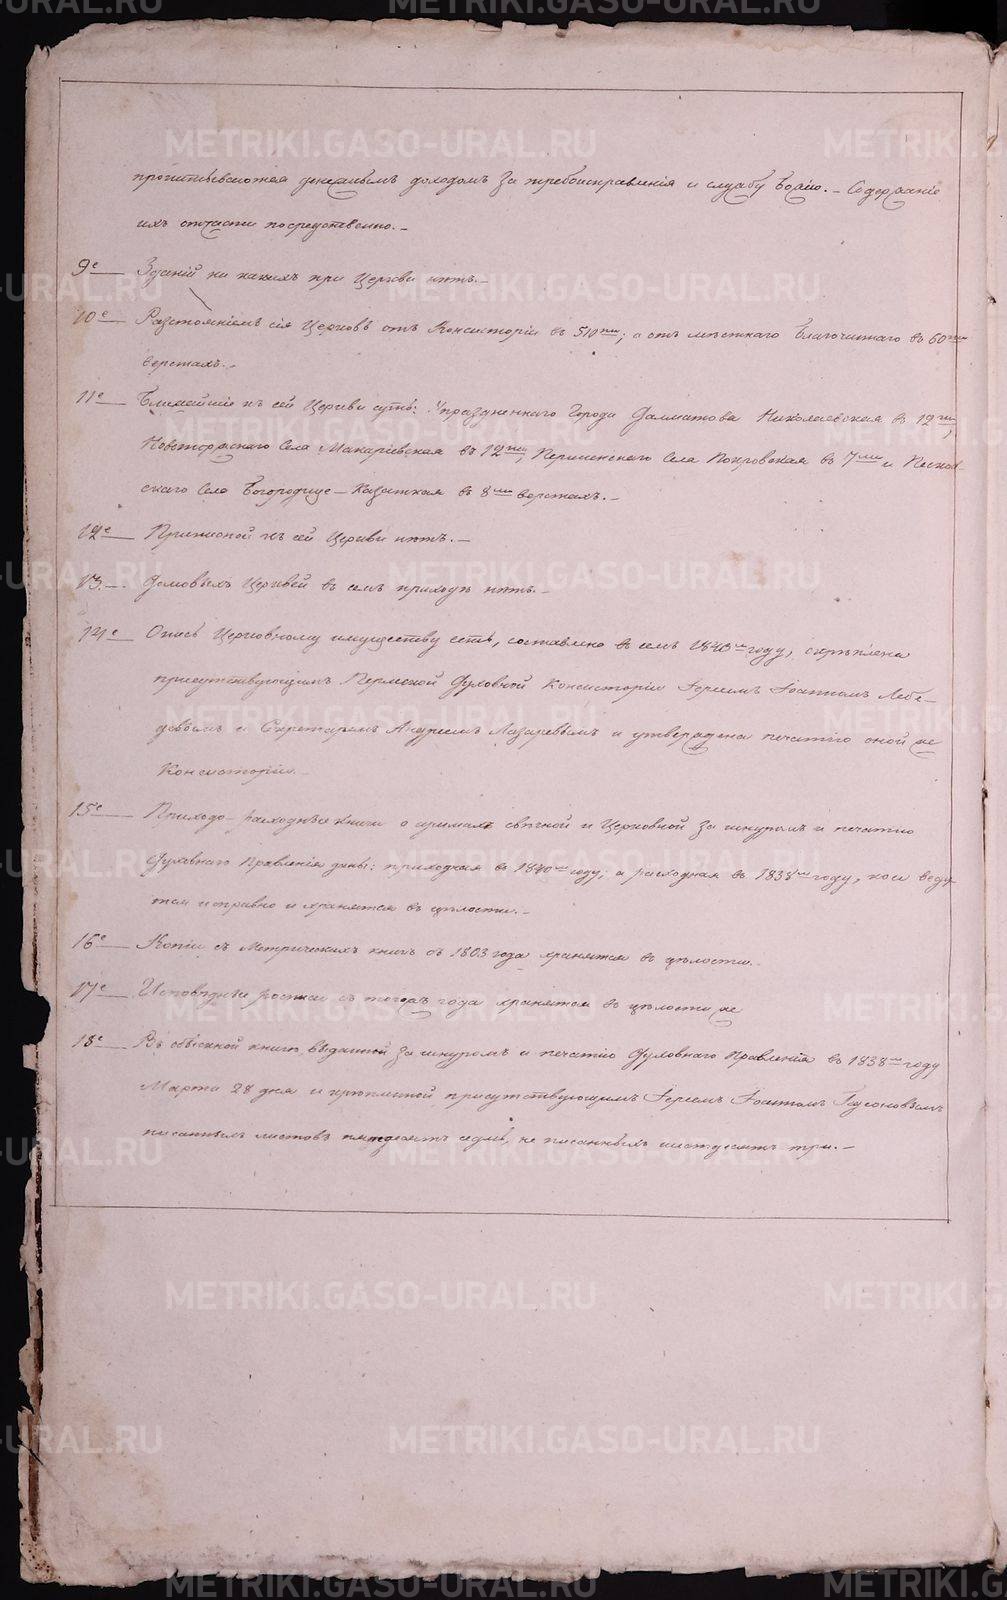 денежнымъ доходомъ за требоисправленія и службу Божію. – Содержаніе
ихъ отчасти посредственно. –
9е Зданій ни какихъ при Церкви нѣтъ. –
10е Разстояніемъ сія Церковь отъ Консисторіи въ 510ти; а отъ мѣстнаго Благочиннаго въ 60ти
верстахъ. –
11е Ближайшіе къ сей Церкви суть: Упраздненнаго Города Далматова Николаевская въ 12ти,
Новоторжскаго Села Макаріевская въ 12ти, Першинскаго Села Покровская въ 7ми и Песков-
скаго Село Богородице – Казанская въ 8ми верстахъ. –
12е Приписной къ сей Церкви нѣтъ. –
13. Домовыхъ Церквей въ семъ приходѣ нѣтъ. –
14е Опись Церковному имуществу есть, составлено въ семъ году, скрѣплена
присутствующимъ Пермской Духовной Консисторіи Іереемъ Іоанномъ Лебе-
девымъ и Секретаремъ Андреемъ Лазаревымъ и утверждена печатію оной же
Консисторіи. –
15е Приходо-расходныя книги о суммахъ свѣчной и Церковной за шнуромъ и печатію
Духовнаго Правленія даны: приходная въ 1840м году; а расходная въ 1838м году, кои веду-
тся исправно и хранятся въ цѣлости. –
16е Копіи съ Метрическихъ книгъ съ 1803 года хранятся въ цѣлости. –
17е Исповѣдныя росписи съ тогожъ года хранятся въ цѣлости же
18е Въ обыскной книгѣ выданной за шнуромъ и печатію Духовнаго Правленія въ 1838м году
Марта 28 дня и скрѣпленной присутствующимъ Іереемъ Іоанномъ
писанныхъ листовъ пятьдесятъ седмь, не писанныхъ шестьдесятъ три. –
METRIKI.GASO-URAL.RU